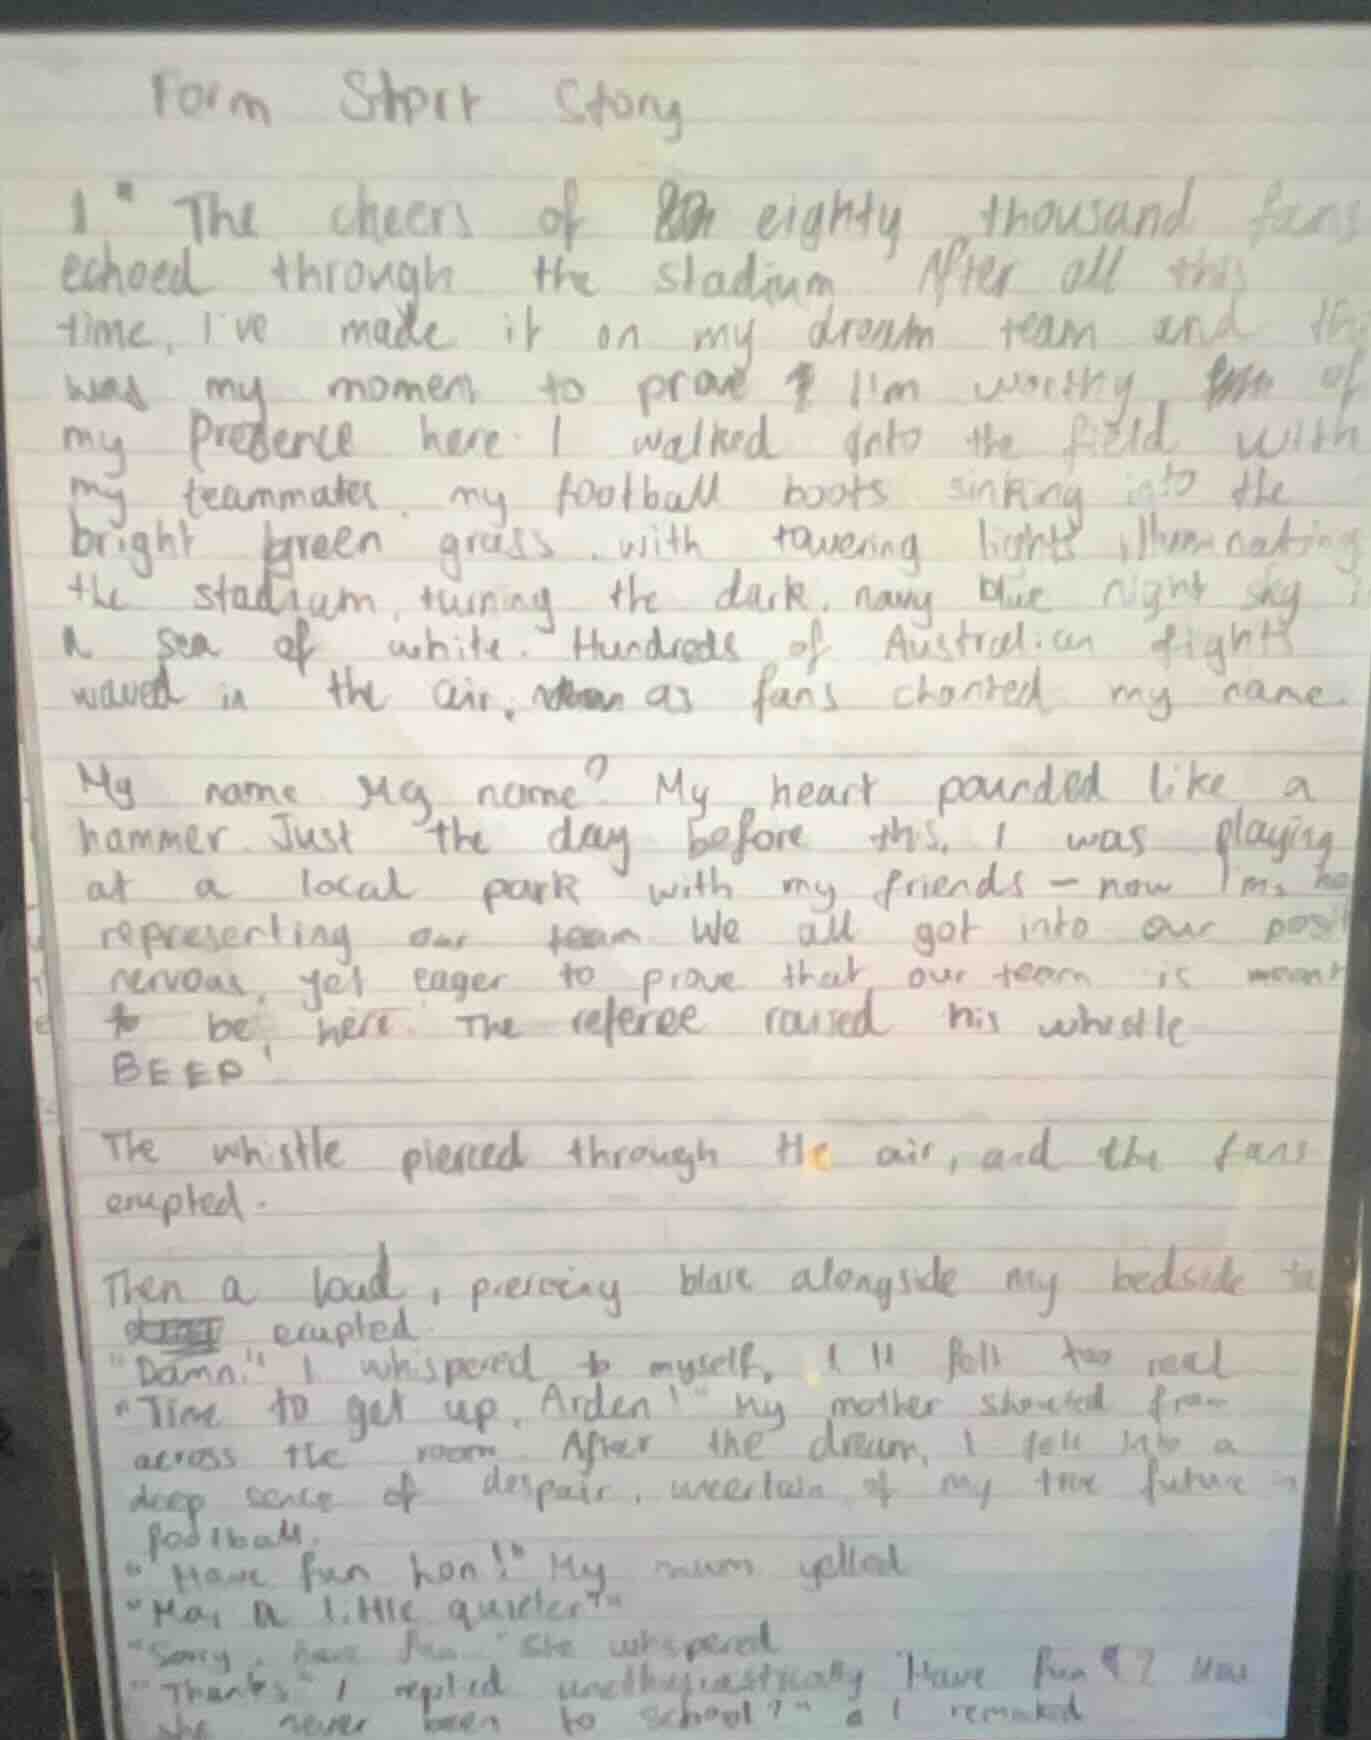 Form Short Story
1" The cheers of eighty thousand fans
echoed through the stadium After all this
time, I've made it on my dream team and
was my moment to prove I'm worthy of
my presence here. I walked onto the field with
my teammates, my football boots sinking into the
bright green grass, with towering lights illuminating
the stadium, turning the dark, navy blue night sky
a sea of white. Hundreds of Australian flights
waved in the air, as fans chanted my name.
My name My name? My heart pounded like a
hammer. Just the day before this, I was playing
at a local park with my friends – now I'm
representing our team We all got into our
nervous, yet eager to prove that our team is meant
to be here. The referee raised his whistle
BEEP!
The whistle pierced through the air, and the fans
erupted.
Then a loud, piercing blare alongside my bedside
erupted.
"Damn!" I whispered to myself, It felt too real
"Time to get up, Arden!" My mother shouted from
across the room After the dream, I fell into a
deep sense of despair, uncertain of my true future in
football.
"Have fun hon!" My mum yelled
"Ma, a little quieter?"
"Sorry, have fun" She whispered
"Thanks" I replied unethusiastically "Have fun? Has
she never been to school?" I remarked